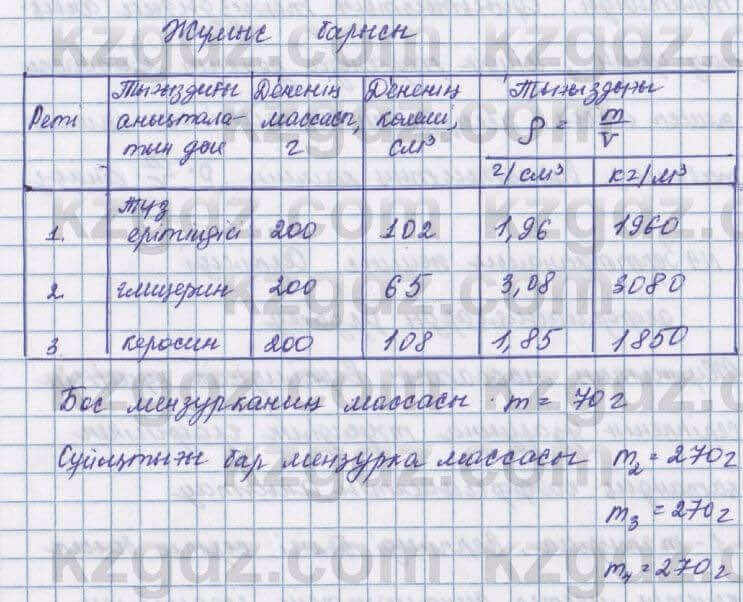 Жұмыс барысы
Рет Тығыздығы анықтала- тын дене Дененің массасы, г Дененің көлемі, см³ Тығыздығы ρ = m/V
г/см³ кг/м³
1. тұз ерітіндісі 200 102 1,96 1960
2. глицерин 200 65 3,08 3080
3 керосин 200 108 1,85 1850
Бос мензурканың массасы m = 70 г
Сұйықтығы бар мензурка массасы m₂ = 270 г
m₃ = 270 г
m₄ = 270 г
kzgdz.com